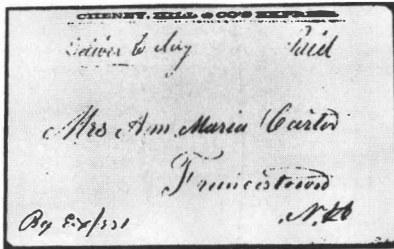 CHENEY, HILL & CO'S EXPRESS.
Paid
Mrs Ann Maria Carter
Francestown
N.H
By